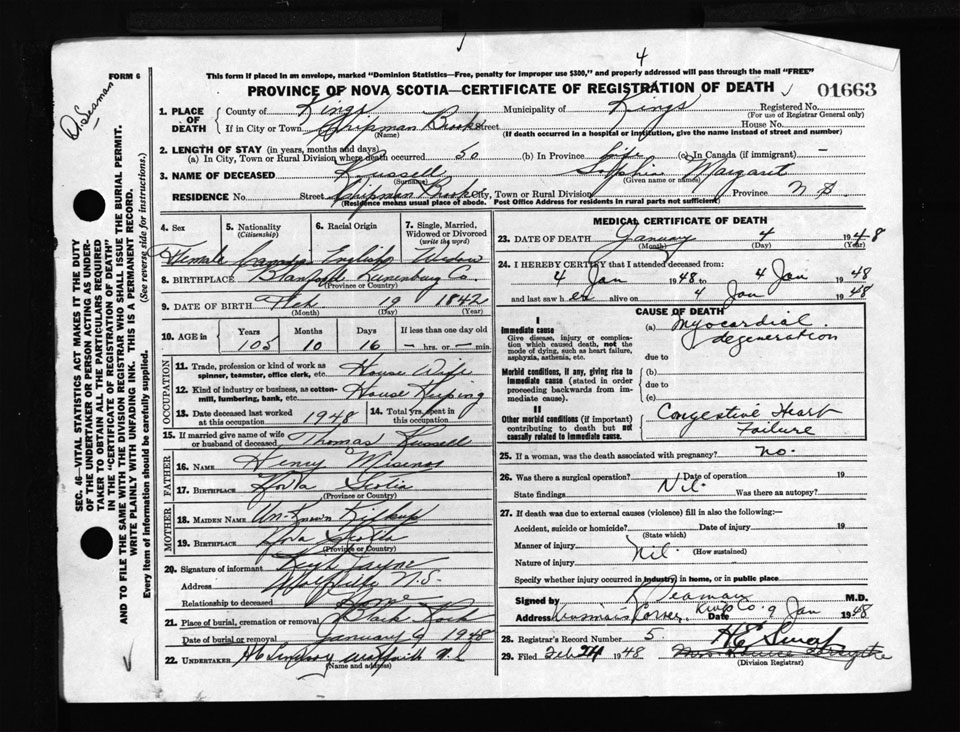 4
FORM 6
This form if placed in an envelope, marked "Dominion Statistics—Free, penalty for improper use $300," and properly addressed will pass through the mail "FREE"
PROVINCE OF NOVA SCOTIA—CERTIFICATE OF REGISTRATION OF DEATH
01663
Dr. Seaman
1. PLACE OF DEATH
County of Kings Municipality of Kings Registered No.
(For use of Registrar General only)
If in City or Town Chipman Brook Street House No.
(Name) (If death occurred in a hospital or institution, give the name instead of street and number)
2. LENGTH OF STAY (in years, months and days)
(a) In City, Town or Rural Division where death occurred 50 (b) In Province life (c) In Canada (if immigrant) —
3. NAME OF DECEASED Russell Sophia Margaret
(Surname) (Given name or names)
RESIDENCE No. Street Chipman Brook City, Town or Rural Division Province N S
(Residence means usual place of abode. Post Office Address for residents in rural parts not sufficient)
4. Sex 5. Nationality (Citizenship) 6. Racial Origin 7. Single, Married, Widowed or Divorced (write the word)
Female Canada English Widow
8. BIRTHPLACE Blandford Lunenburg Co.
(Province or Country)
9. DATE OF BIRTH Feb 19 1842
(Month) (Day) (Year)
10. AGE IN Years Months Days If less than one day old
105 10 16 — hrs. or — min.
OCCUPATION
11. Trade, profession or kind of work as spinner, teamster, office clerk, etc. House Wife
12. Kind of industry or business, as cotton-mill, lumbering, bank, etc. House Keeping
13. Date deceased last worked at this occupation 1948 14. Total yrs. spent in this occupation
15. If married give name of wife or husband of deceased Thomas Russell
FATHER
16. NAME Henry
17. BIRTHPLACE Nova Scotia
(Province or Country)
MOTHER
18. MAIDEN NAME Un-Known
19. BIRTHPLACE Nova Scotia
(Province or Country)
20. Signature of informant
Address Wolfville N.S.
Relationship to deceased
21. Place of burial, cremation or removal Black Rock
Date of burial or removal January 1948
22. UNDERTAKER Wolfville N.S
(Name and address)
MEDICAL CERTIFICATE OF DEATH
23. DATE OF DEATH January 4 1948
(Month) (Day) (Year)
24. I HEREBY CERTIFY that I attended deceased from:
4 Jan 1948 to 4 Jan 1948
and last saw her alive on 4 Jan 1948
CAUSE OF DEATH
I
Immediate cause
Give disease, injury or complication which caused death, not the mode of dying, such as heart failure, asphyxia, asthenia, etc.
(a) Myocardial degeneration
due to
Morbid conditions, if any, giving rise to immediate cause (stated in order proceeding backwards from immediate cause).
(b)
due to
(c)
II
Other morbid conditions (if important) contributing to death but not causally related to immediate cause.
Congestive Heart Failure
25. If a woman, was the death associated with pregnancy? no.
26. Was there a surgical operation? Date of operation 19
State findings Nil. Was there an autopsy?
27. If death was due to external causes (violence) fill in also the following:—
Accident, suicide or homicide? Date of injury 19
(State which)
Manner of injury Nil. (How sustained)
Nature of injury
Specify whether injury occurred in industry, in home, or in public place
Signed by Seaman M.D.
Address Corner, Kings Co. Date 9 Jan 1948
28. Registrar's Record Number 5
29. Filed Feb 1948
(Division Registrar)
SEC. 46—VITAL STATISTICS ACT MAKES IT THE DUTY OF THE UNDERTAKER OR PERSON ACTING AS UNDERTAKER TO OBTAIN ALL THE PARTICULARS REQUIRED IN THE "CERTIFICATE OF REGISTRATION OF DEATH" AND TO FILE THE SAME WITH THE DIVISION REGISTRAR WHO SHALL ISSUE THE BURIAL PERMIT.
WRITE PLAINLY WITH UNFADING INK. THIS IS A PERMANENT RECORD.
Every item of information should be carefully supplied. (See reverse side for instructions.)